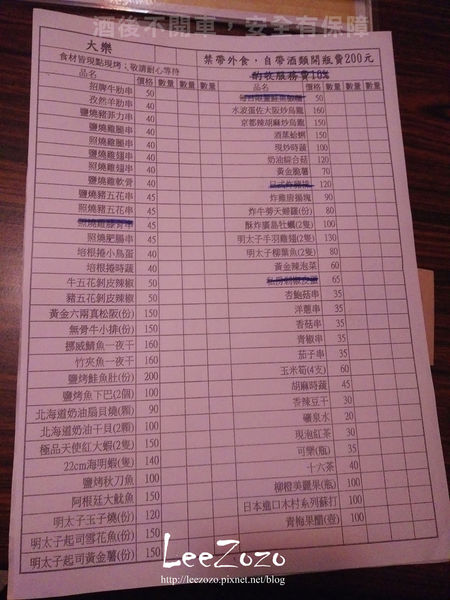 酒後不開車,安全有保障
大樂
禁帶外食,自帶酒類開瓶費200元
食材皆現點現烤;敬請耐心等待
酌收服務費10%
品名 價格 數量 數量 數量
品名 價格 數量 數量 數量
招牌牛肋串 50
孜然羊肋串 40
鹽燒豬菲力串 40
鹽燒雞腿串 40
照燒雞腿串 40
鹽燒雞翅串 40
照燒雞翅串 40
鹽燒雞軟骨 40
鹽燒豬五花串 45
照燒豬五花串 45
照燒雞膝骨串 45
照燒肥腸串 45
培根捲小鳥蛋 40
培根捲時蔬 40
牛五花剝皮辣椒 50
豬五花剝皮辣椒 50
黃金六兩真松阪(份) 150
無骨牛小排(份) 150
挪威鯖魚一夜干 160
竹夾魚一夜干 160
鹽烤鮭魚肚(份) 200
鹽烤魚下巴(2個) 100
北海道奶油扇貝燒(顆) 90
北海道奶油干貝(2顆) 100
極品天使紅大蝦(2隻) 150
22cm海明蝦(隻) 140
鹽烤秋刀魚 100
阿根廷大魷魚 150
明太子玉子燒(份) 120
明太子起司雪花魚(份) 150
明太子起司黃金薯(份) 150
50
水波蛋佐大阪炒烏龍 120
京都辣胡麻炒烏龍 120
酒蒸蛤蜊 150
現炒時蔬 100
奶油綜合菇 120
黃金脆薯 70
日式炸豬排 120
炸雞唐揚塊 90
炸牛蒡天婦羅(份) 80
酥炸廣島牡蠣(2隻) 120
明太子手羽雞翅(2隻) 130
明太子柳葉魚(2隻) 80
黃金辣泡菜 60
65
杏鮑菇串 35
洋蔥串 35
香菇串 35
青椒串 35
茄子串 35
玉米筍(4支) 60
胡麻時蔬 45
香辣豆干 30
礦泉水 20
現泡紅茶 30
可樂(瓶) 35
十六茶 40
柳橙美麗果(瓶) 100
日本進口木村系列蘇打 100
青梅果醋(壺) 100
LeeZozo
http://leezozo.pixnet.net/blog